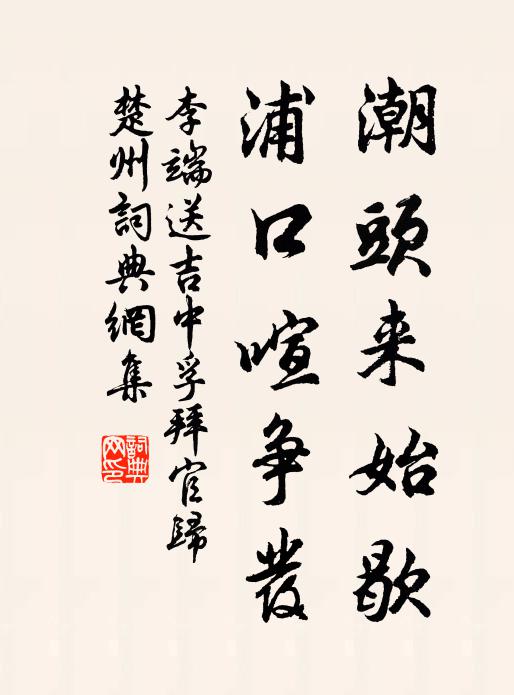 潮頭来始歇
浦口喧争發
李端送吉中孚拜官歸
楚州詞典網集
詞典网印